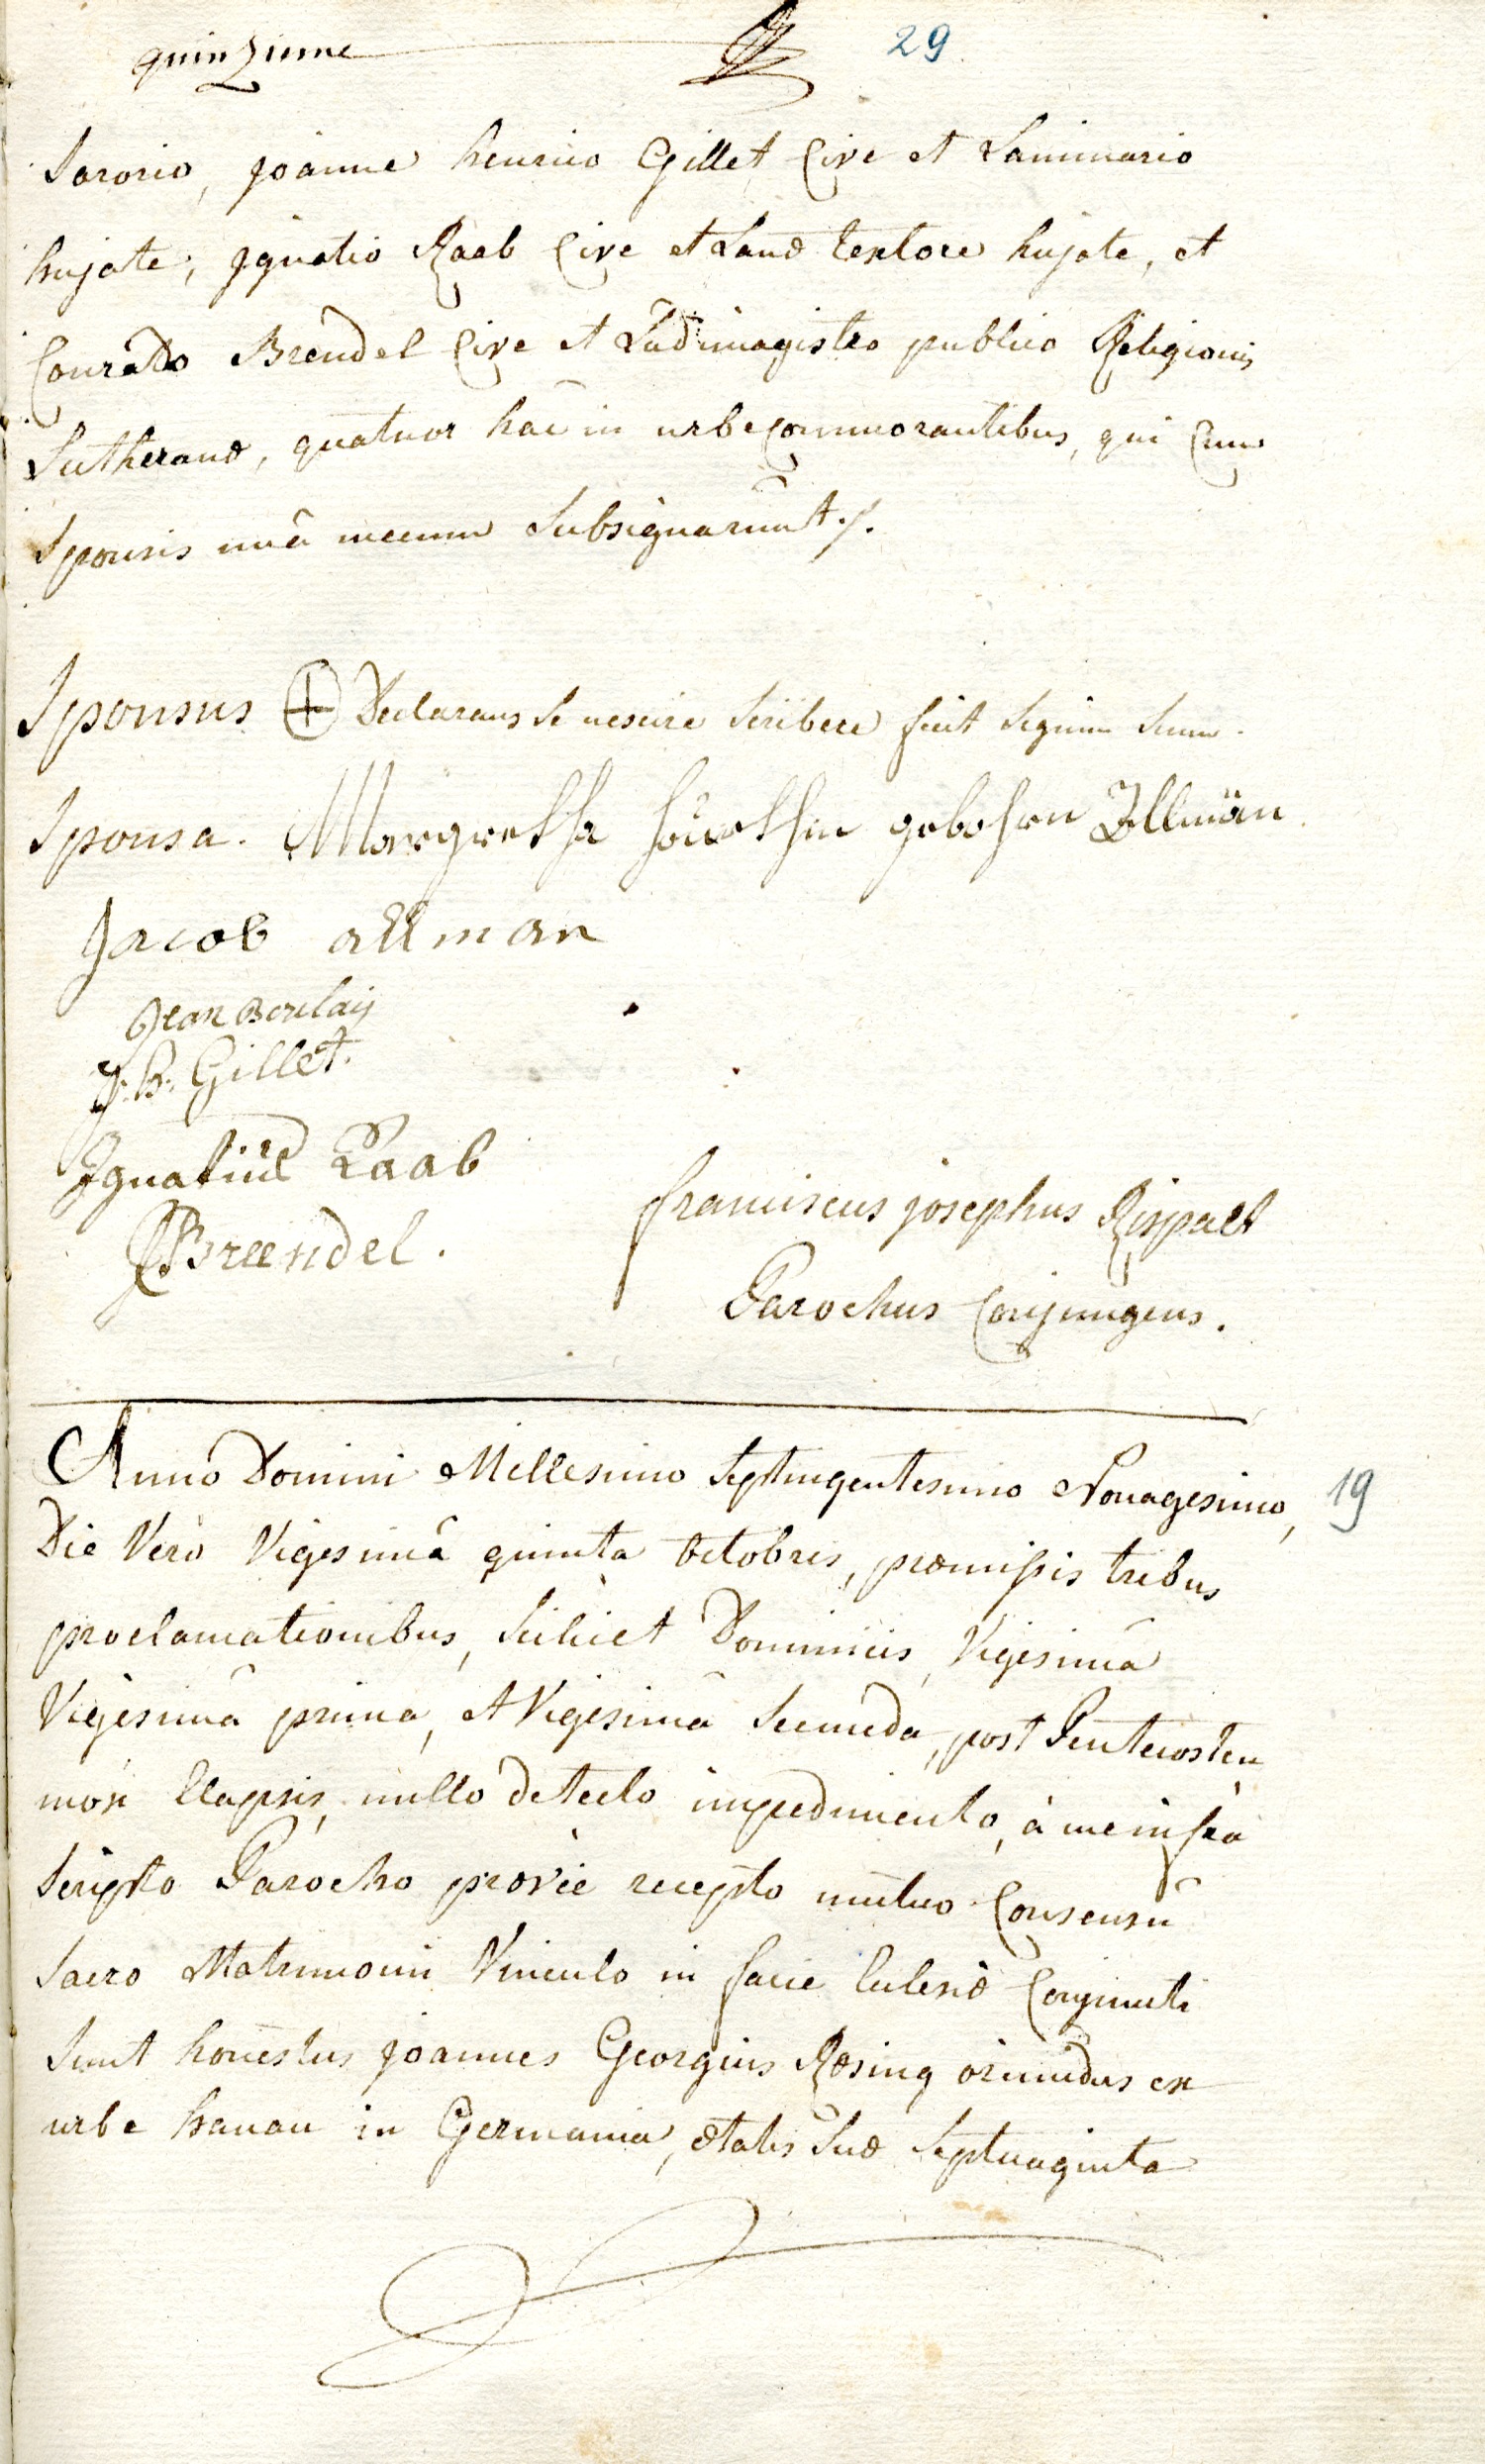 quinzieme 29
Sororio, joanne henrico Gillet Cive et Laminario
hujate; jgnatio Raab Cive et Lanæ textore hujate, et
Conrado Brendel Cive et Ludimagistro publico Religionis
Lutheranæ, quatuor hac in urbe Commorantibus, qui Cum
Sponsis unâ mecum Subsignarunt ./.
Sponsus + Declarans se nescire scribere fecit signum suum.
Sponsa. Margretha gebohrn
Jacob allman
Jean Boulay
J. h. Gillet.
Ignatius Raab
CBrendel.
franciscus josephus Rispalt
Parochus Conjungens.
Anno Domini Millesimo Septingentesimo Nonagesimo, 19
Die Vero Vigesimâ quinta octobris, præmissis tribus
proclamationibus, Scilicet Dominicis, Vigesimâ
Vigesimâ primâ, et Vigesimâ Secundâ, post Pentecosten
mox Elapsis, nullo detecto impedimento, à me infra
Scripto Parocho prævie recepto mutuo Consensu
Sacro Matrimonii Vinculo in facie Eclesiæ Conjuncti
Sunt honestus joannes Georgius Rosing oriundus ex
urbe hanau in Germania, ætatis suæ Septuaginta